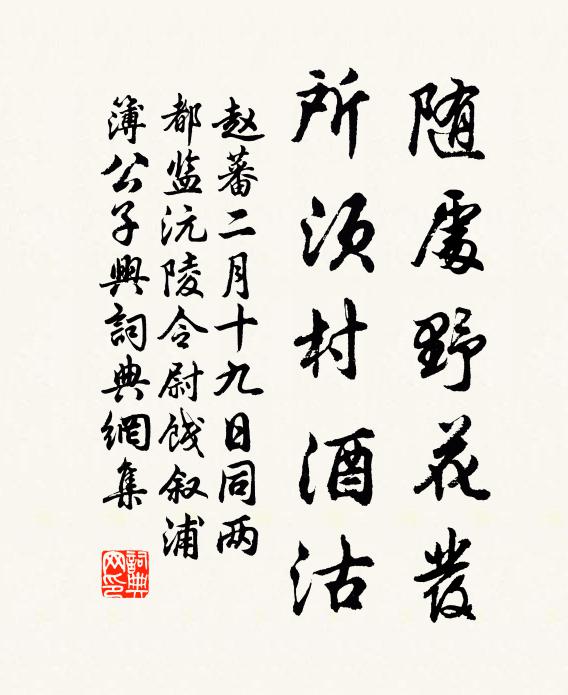 随處野花發
所須村酒沽
赵蕃二月十九日同两
都监沅陵令尉餞叙浦
簿公子興詞典網集
詞典網印